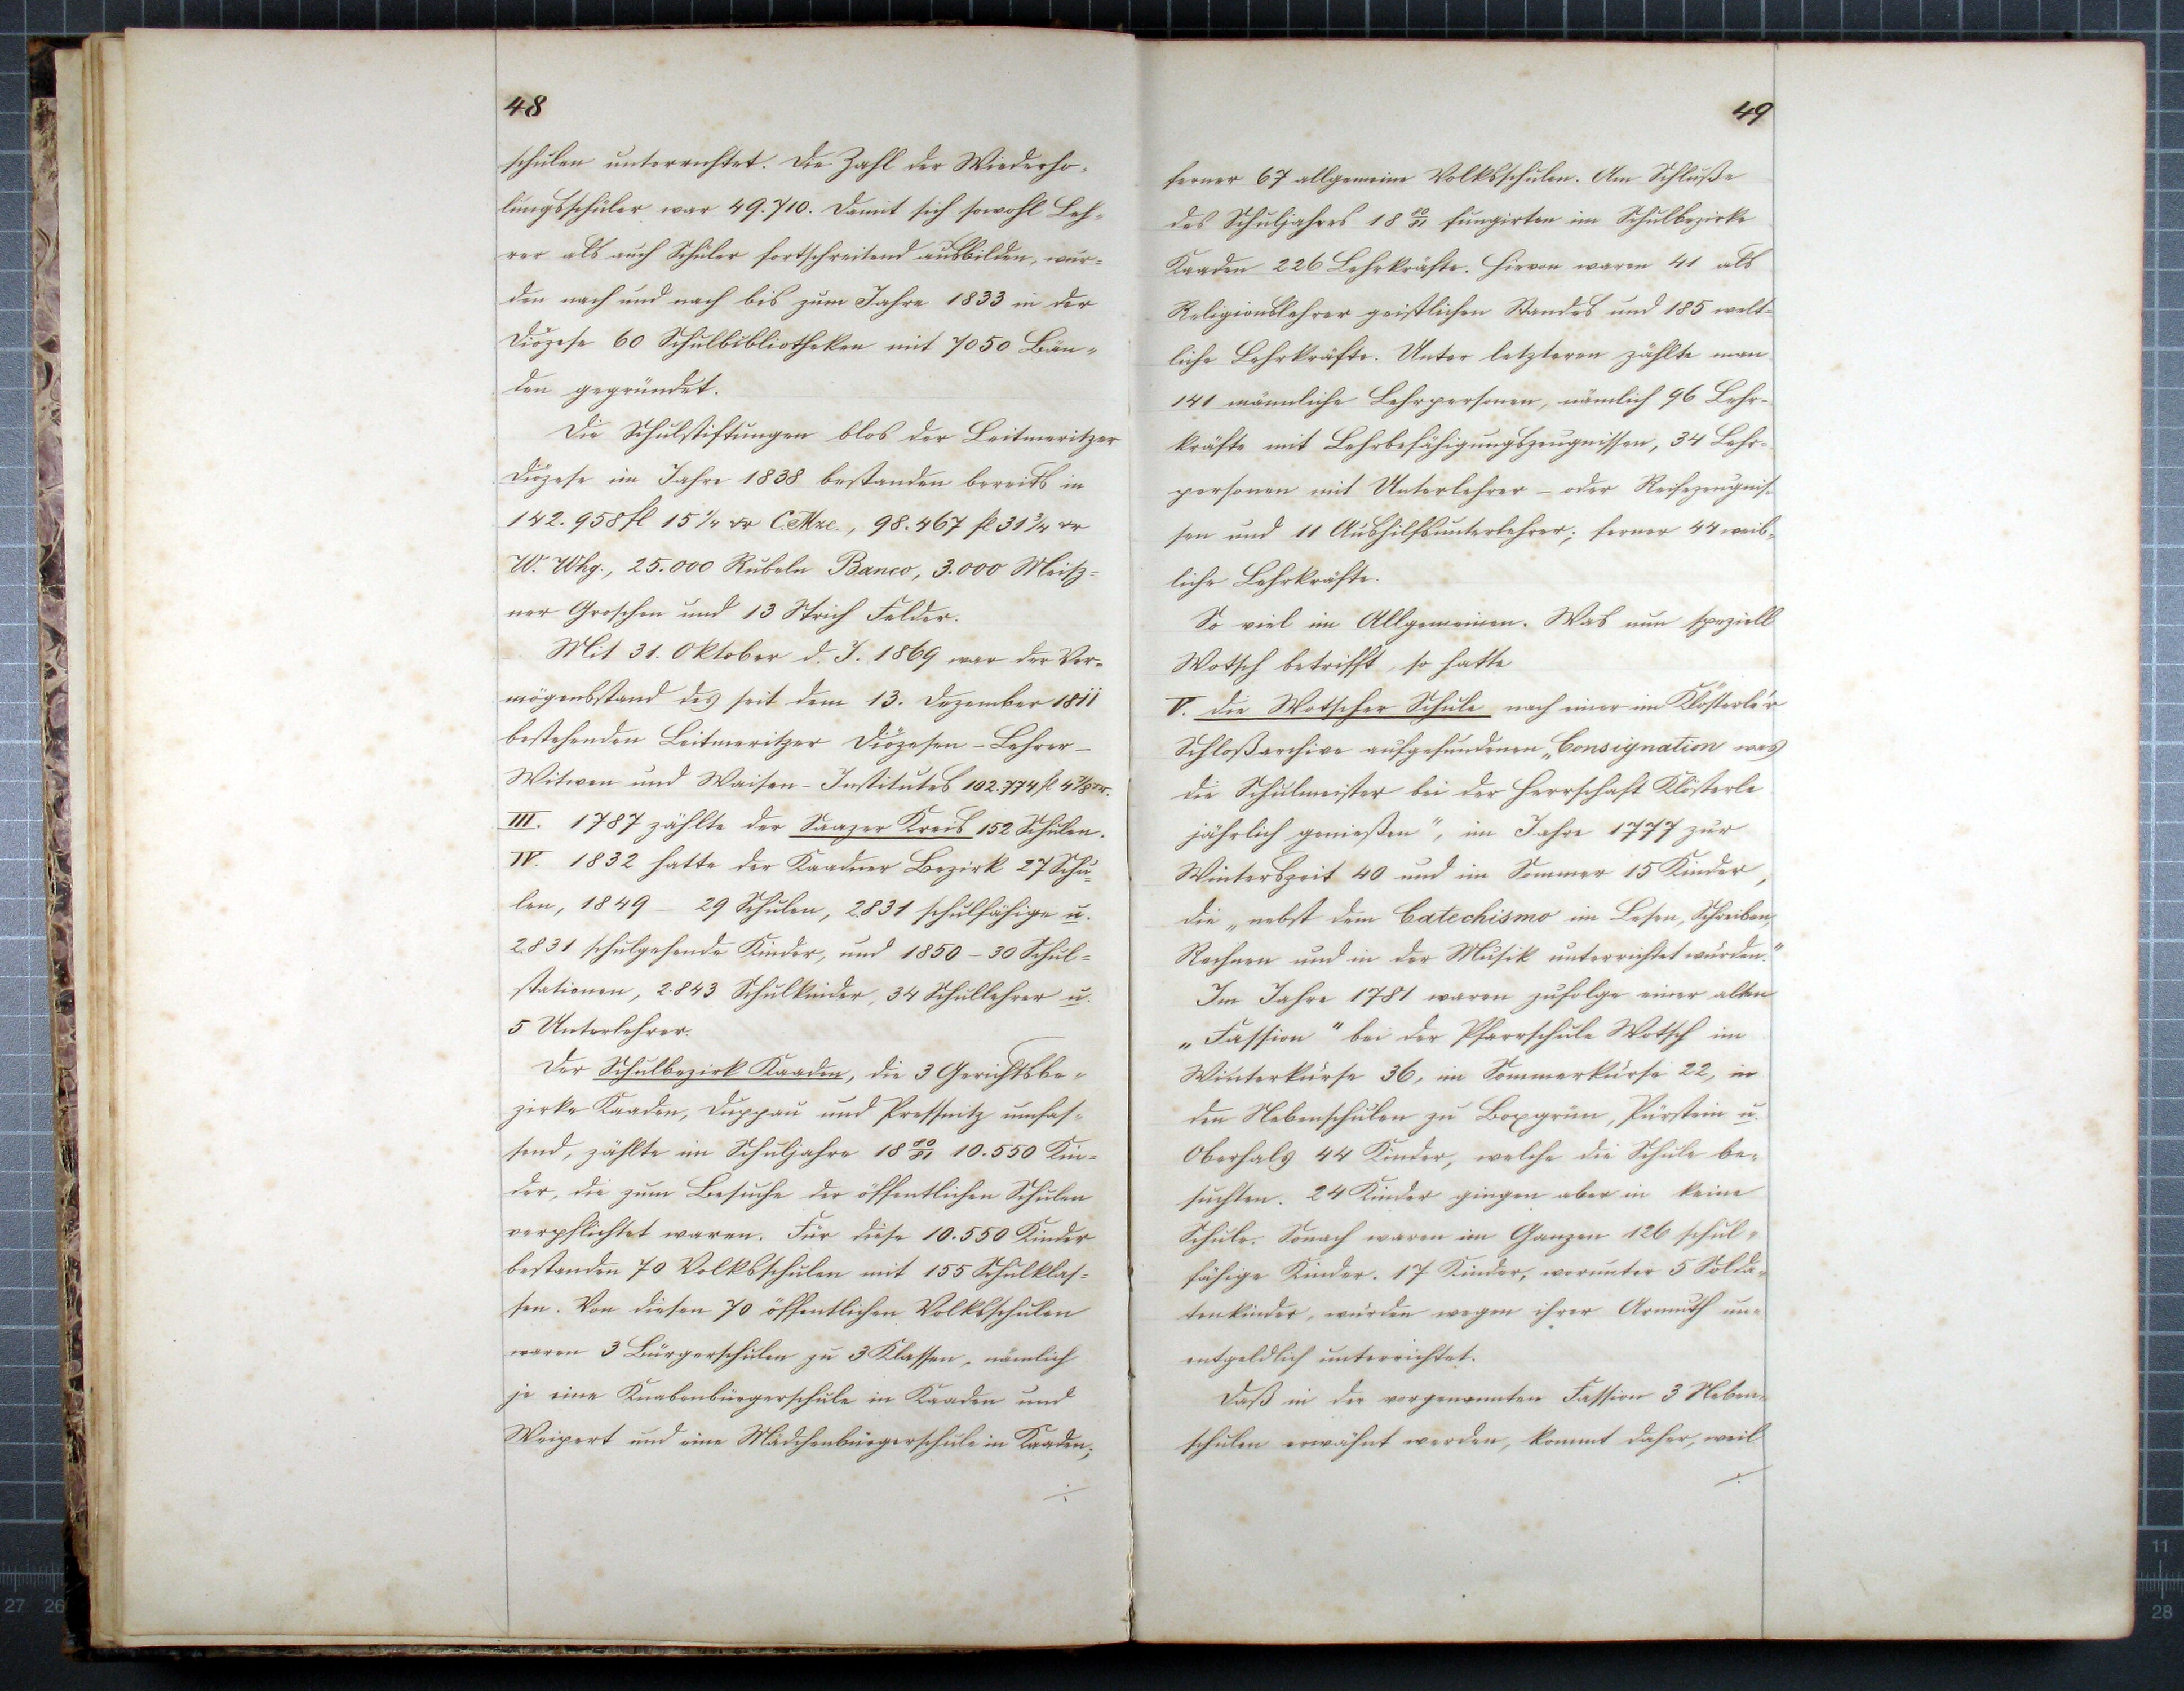 48
schulen unterrichtet. Die Zahl der Wiederho-
lungsschüler war 49.710. Damit sich sowohl Leh-
rer als auch Schüler fortschreitend ausbilden, wur-
den nach und nach bis zum Jahre 1833 in der
Diözese 60 Schulbibliotheken mit 7050 Bän-
den gegründet.
Die Schulstiftungen blos der Leitmeritzer
Diözese im Jahre 1838 bestanden bereits in
142.958 fl 15 1/4 xr C.Mze., 98.467 fl 31 3/4 xr
W. Whg., 25.000 Rubeln Banco, 3.000 Meisz-
ner Groschen und 13 Strich Felder.
Mit 31. Oktober d. J. 1869 war der Ver-
mögensstand des seit dem 13. Dezember 1811
bestehenden Leitmeritzer Diözesen-Lehrer-
Witwen und Waisen-Institutes 102.774 fl 4 7/8 xr.
III. 1787 zählte der Saazer Kreis 152 Schulen.
IV. 1832 hatte der Kaadner Bezirk 27 Schu-
len, 1849 – 29 Schulen, 2831 schulfähige u.
2831 schulgehende Kinder, und 1850 – 30 Schul-
stationen, 2.843 Schulkinder, 34 Schullehrer u.
5 Unterlehrer.
Der Schulbezirk Kaaden, die 3 Gerichtsbe-
zirke Kaaden, Duppau und Pressnitz umfas-
send, zählte im Schuljahre 18 80/81 10.550 Kin-
der, die zum Besuche der öffentlichen Schulen
verpflichtet waren. Für diese 10.550 Kinder
bestanden 70 Volksschulen mit 155 Schulklas-
sen. Von diesen 70 öffentlichen Volksschulen
waren 3 Bürgerschulen zu 3 Klassen, nämlich
je eine Knabenbürgerschule in Kaaden und
Weipert und eine Mädchenbürgerschule in Kaaden;
./.
49
ferner 67 allgemeine Volksschulen. Am Schluße
des Schuljahres 18 80/81 fungirten im Schulbezirke
Kaaden 226 Lehrkräfte. Hievon waren 41 als
Religionslehrer geistlichen Standes und 185 welt-
liche Lehrkräfte. Unter letzteren zählte man
141 männliche Lehrpersonen, nämlich 96 Lehr-
kräfte mit Lehrbefähigungszeugnissen, 34 Lehr-
personen mit Unterlehrer- oder Reifezeugnis-
sen und 11 Aushilfsunterlehrer; ferner 44 weib-
liche Lehrkräfte.
So viel im Allgemeinen. Was nun speziell
Wotsch betrifft, so hatte
V. die Wotscher Schule nach einer im Klösterler
Schloßarchive aufgefundenen „Consignation was
die Schulmeister bei der Herrschaft Klösterle
jährlich genießen", im Jahre 1777 zur
Winterszeit 40 und im Sommer 15 Kinder,
die „nebst dem Catechismo im Lesen, Schreiben,
Rechnen und in der Musik unterrichtet wurden."
Im Jahre 1781 waren zufolge einer alten
„Fassion" bei der Pfarrschule Wotsch im
Winterkurse 36, im Sommerkurse 22, in
den Nebenschulen zu Boxgrün, Pürstein u.
Oberhals 44 Kinder, welche die Schule be-
suchten. 24 Kinder gingen aber in keine
Schule. Sonach waren im Ganzen 126 schul-
fähige Kinder. 17 Kinder, worunter 5 Solda-
tenkinder, wurden wegen ihrer Armuth un-
entgeldlich unterrichtet.
Daß in der vorgenannten Fassion 3 Neben-
schulen erwähnt werden, kommt daher, weil
./.
27 26
11
28